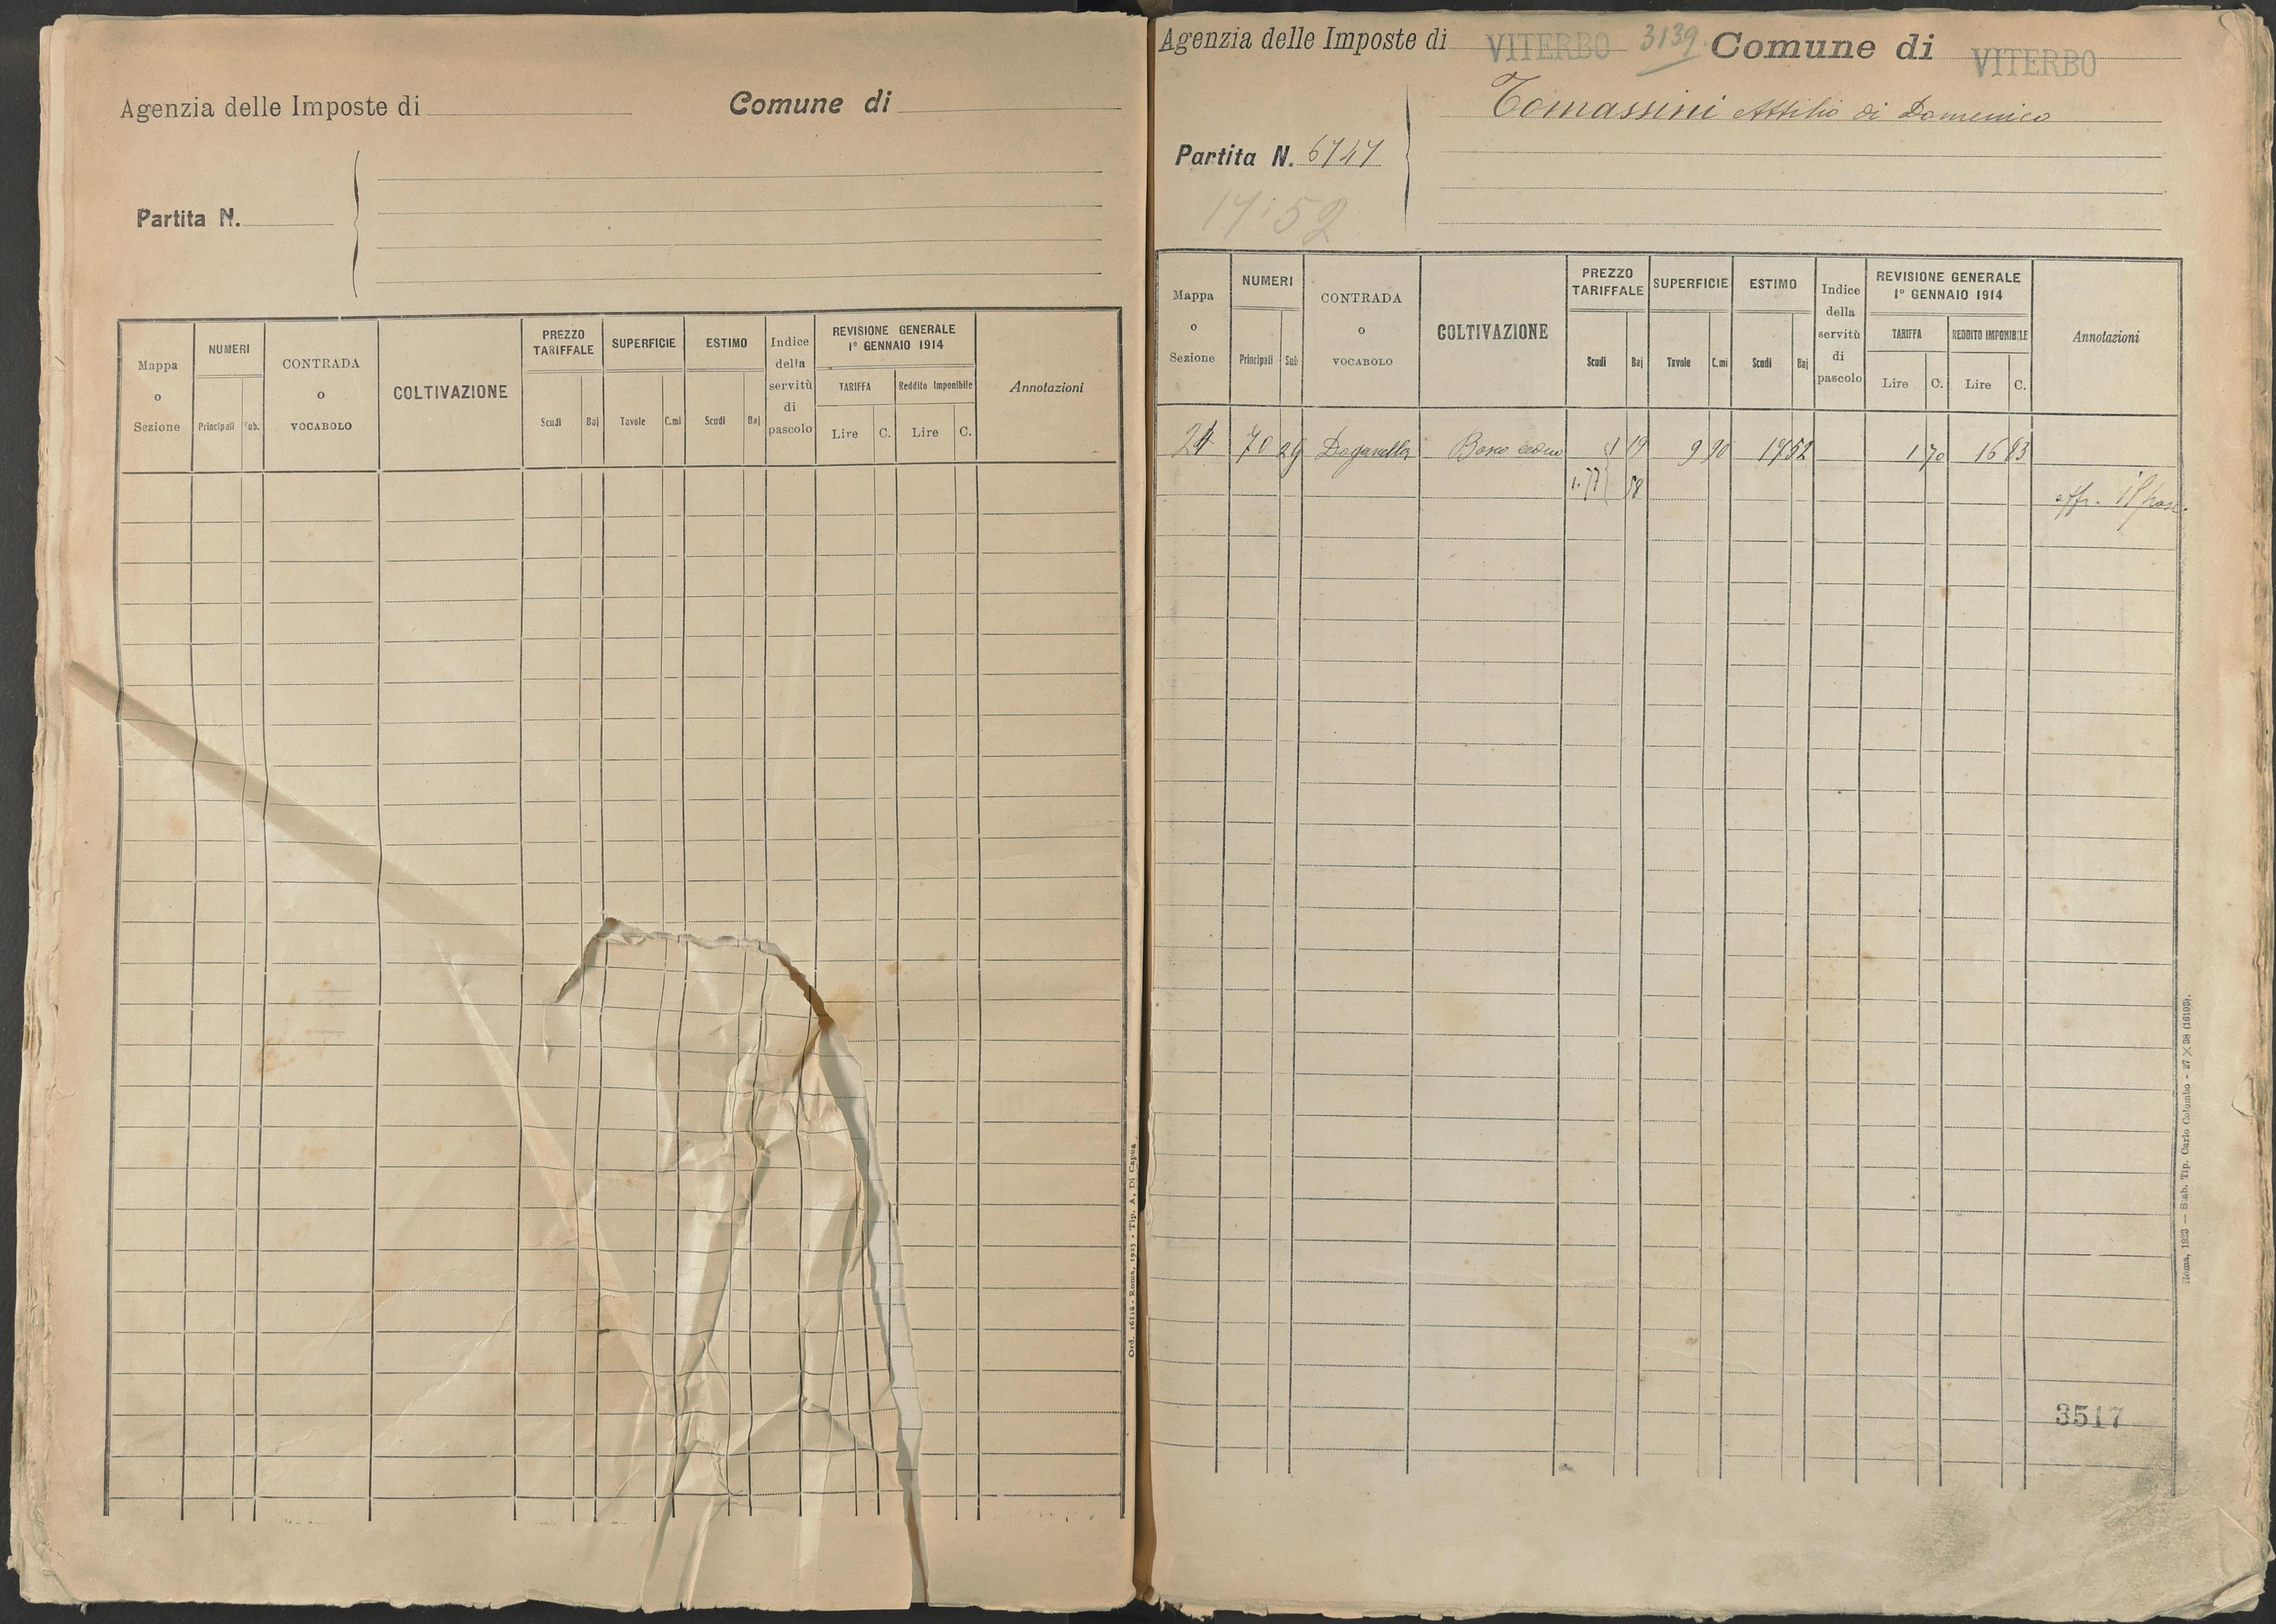 Agenzia delle Imposte di
Comune di
Partita N.
Mappa o Sezione
NUMERI
Principali
Sub.
CONTRADA o VOCABOLO
COLTIVAZIONE
PREZZO TARIFFALE
Scudi
Baj
SUPERFICIE
Tavole
C.mi
ESTIMO
Scudi
Baj
Indice della servitù di pascolo
REVISIONE GENERALE
1° GENNAIO 1914
TARIFFA
Reddito Imponibile
Lire
C.
Lire
C.
Annotazioni
Ord. 16118 - Roma, 1923 - Tip. A. Di Capua
Agenzia delle Imposte di VITERBO 3139 Comune di VITERBO
Tomassini Attilio di Domenico
Partita N. 6747
17:52
Mappa o Sezione
NUMERI
Principali
Sub
CONTRADA o VOCABOLO
COLTIVAZIONE
PREZZO TARIFFALE
Scudi
Baj
SUPERFICIE
Tavole
C.mi
ESTIMO
Scudi
Baj
Indice della servitù di pascolo
REVISIONE GENERALE
1° GENNAIO 1914
TARIFFA
REDDITO IMPONIBILE
Lire
C.
Lire
C.
Annotazioni
24 70 29 Doganella Bosco ceduo 1 19 9 90 17 52 1 70 16 83
1.77 58
3517
Roma, 1923 — Stab. Tip. Carlo Colombo - 27 × 38 (16103).